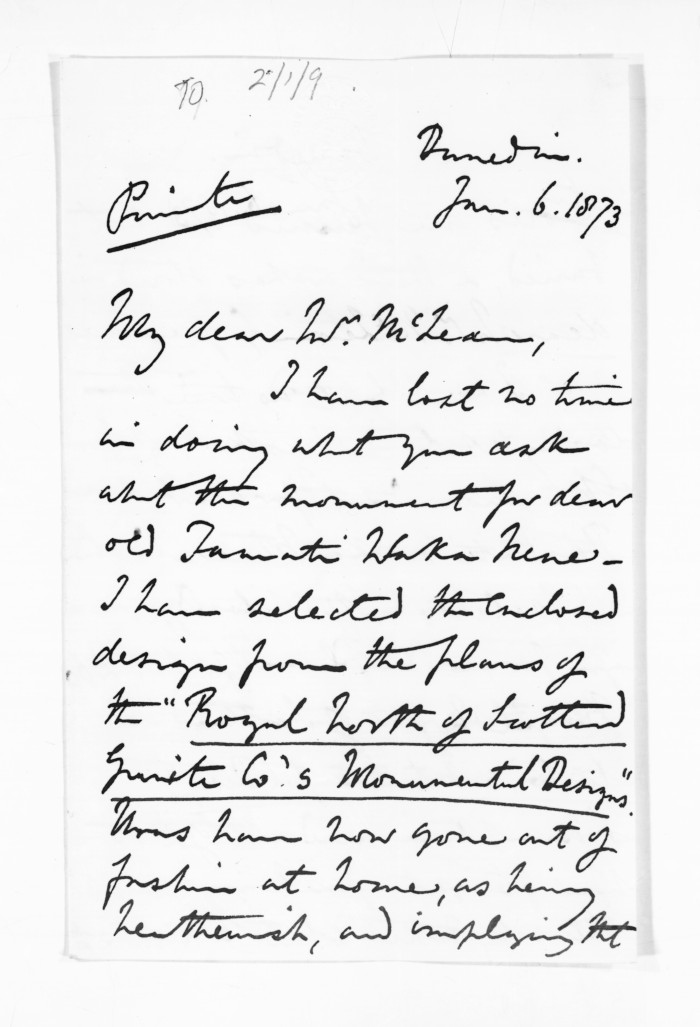 TO. 2/1/9
Dunedin.
Private
Jan. 6. 1873
My dear Mr. McLean,
I have lost no time
in doing what you ask
abt the monument for dear
old Tamati Waka Nene –
I have selected the enclosed
design from the plans of
the "Royal North of Scotland
Granite Co's Monumental Designs".
Urns have now gone out of
fashion at home, as being
heathenish, and implying tht